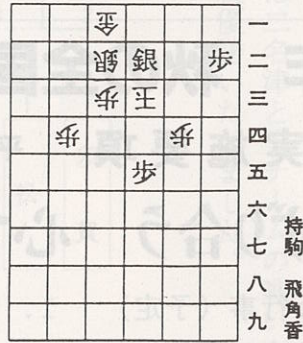 金 一
銀 銀 歩 二
歩 王 三
歩 歩 四
歩 五
六
七
八
九
持駒 飛角香